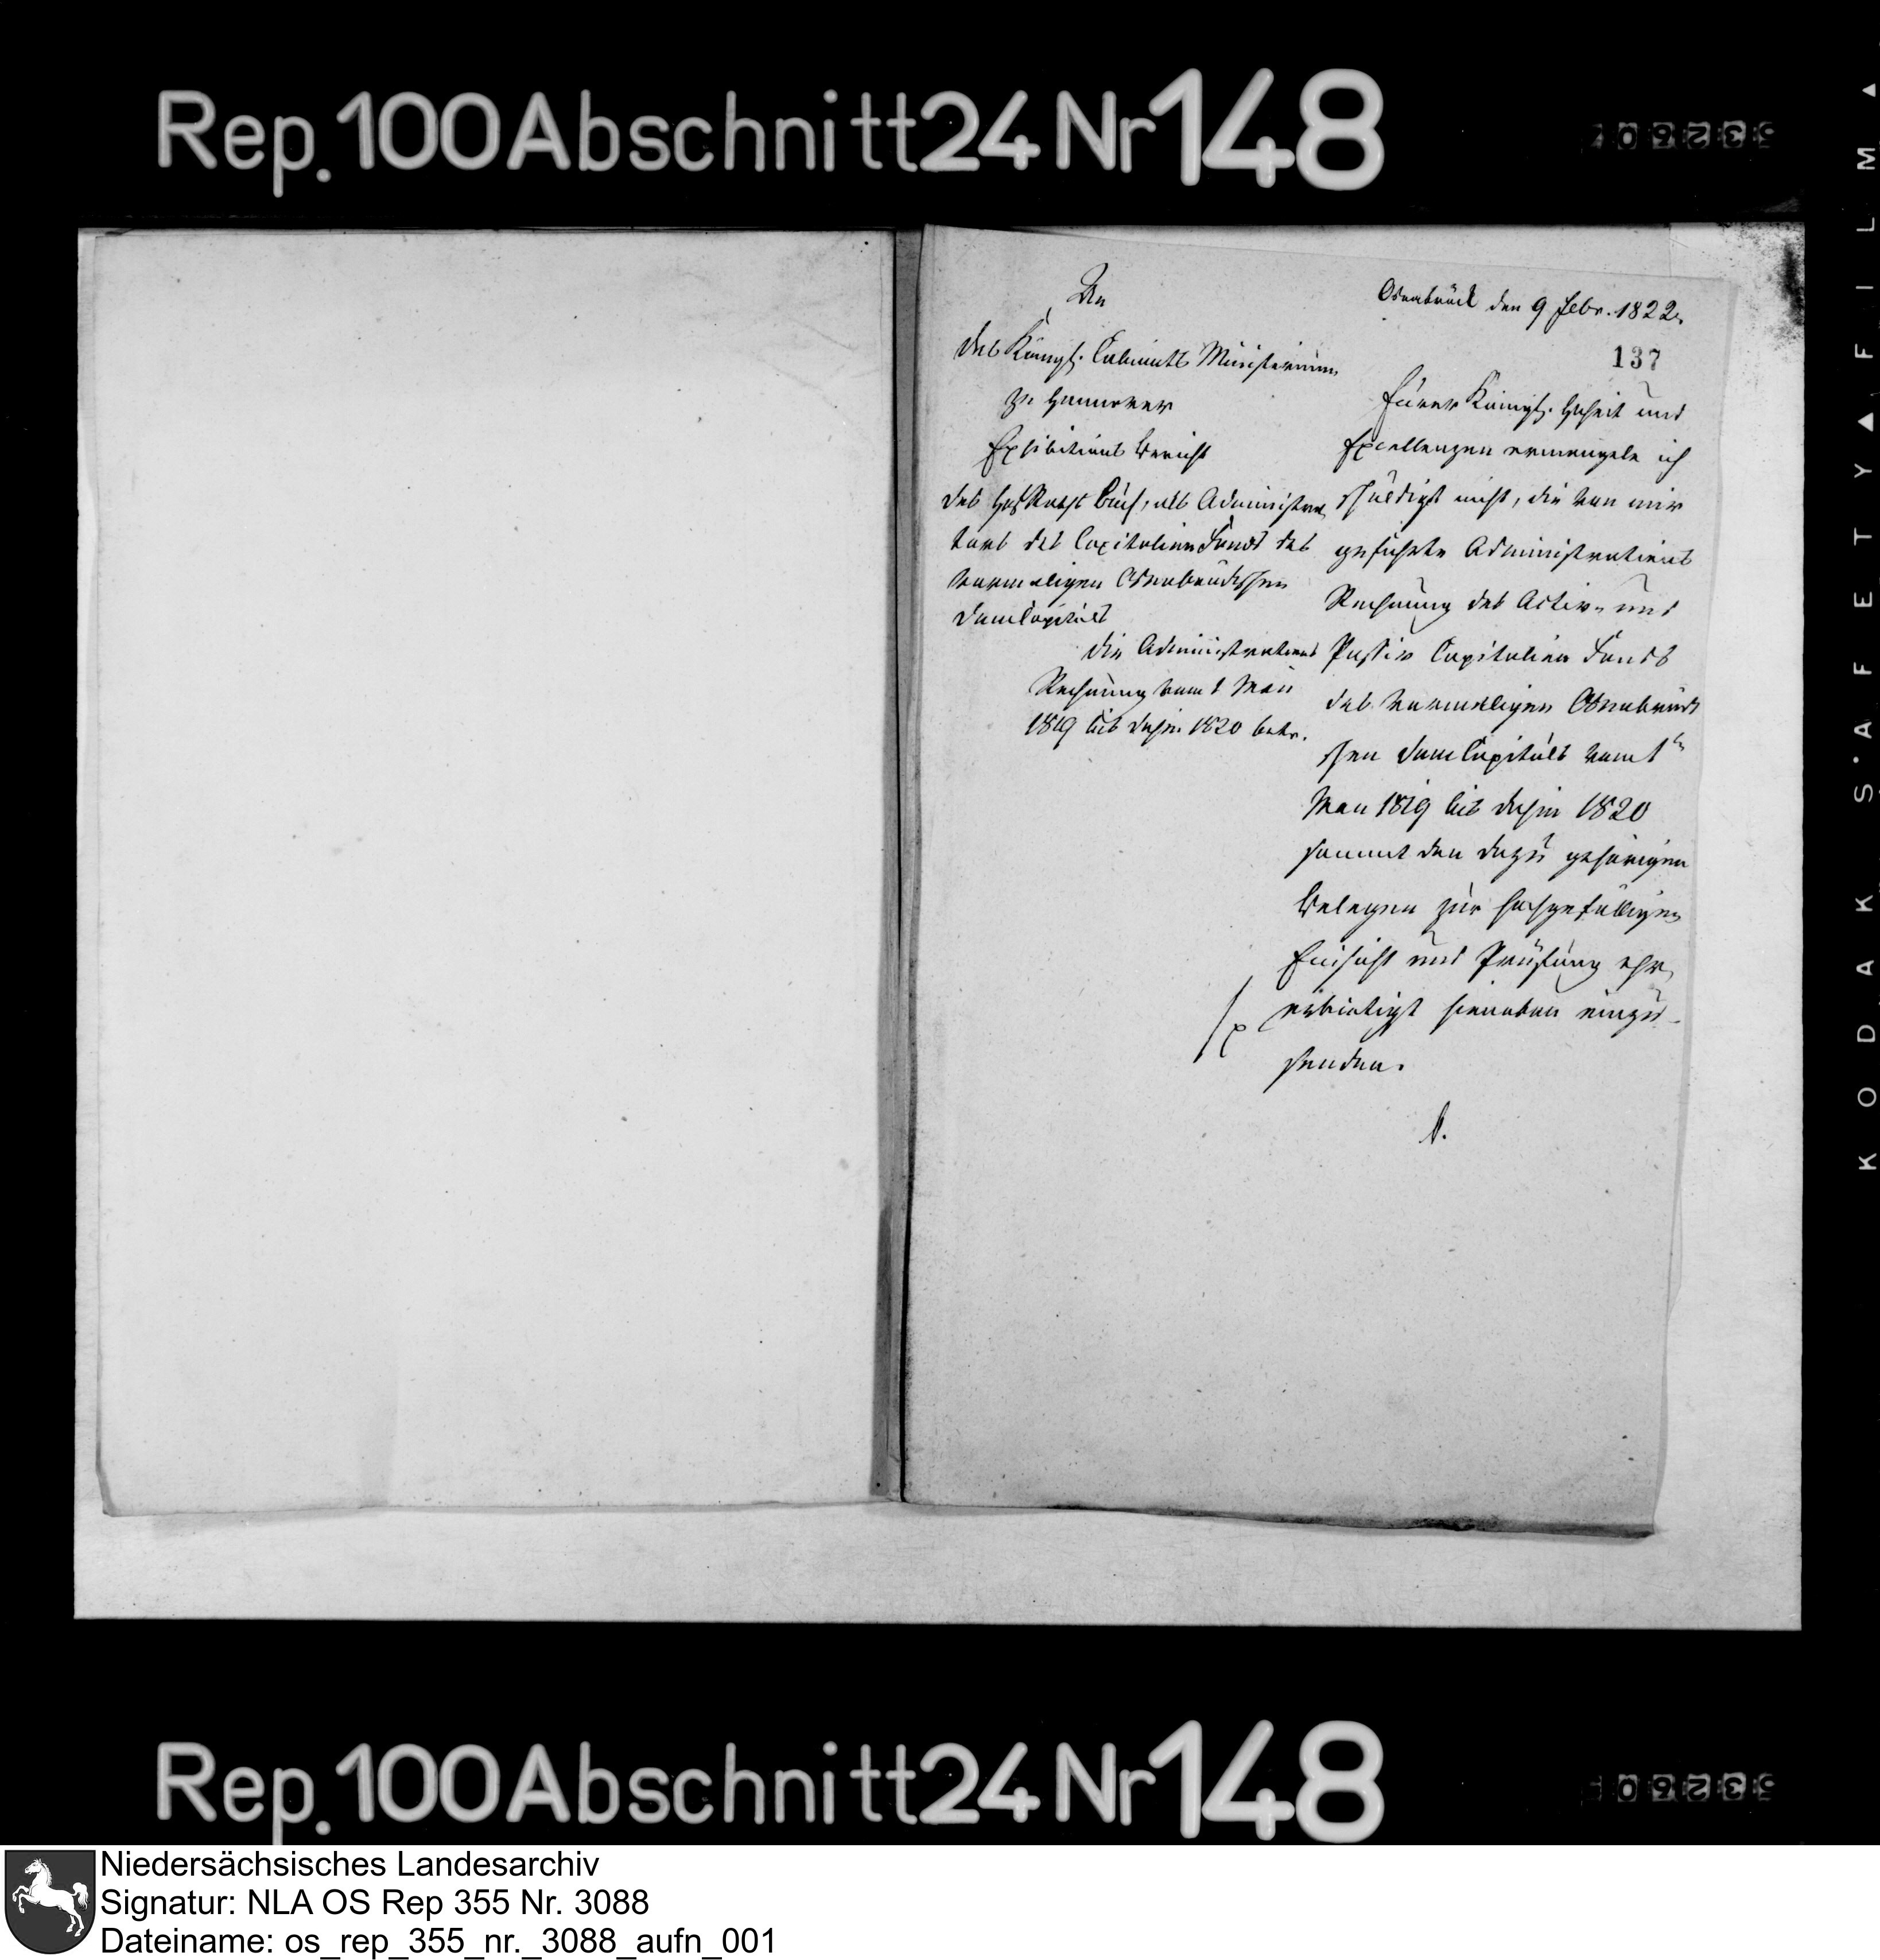 Rep. 100 Abschnitt 24 Nr 148
An
das Königl. Cabinets Ministerium
zu Hannover
Exhibitions Bericht
des als Administra
tors des Capitalien Fonds des
vormaligen Osnabrückschen
DomCapituls
die Administrations
Rechnung vom 1 Mai
1819 bis dahin 1820 betr.
Osnabrück den 9 Febr. 1822.
137
Eurer Königl. Hoheit und
Excellenzen ermangele ich
schuldigst nicht, die von mir
geführte Administrations
Rechnung des Activ- und
Passiv Capitalien Fonds
des vormaligen Osnabrück
schen DomCapituls vom 1ten
May 1819 bis dahin 1820
sammt den dazu gehörigen
Belegen zur hochgefälligen
Einsicht und Prüfung ehr
erbietigst hieneben einzu-
senden.
KODAK SAFETY FILM
Rep. 100 Abschnitt 24 Nr 148
Niedersächsisches Landesarchiv
Signatur: NLA OS Rep 355 Nr. 3088
Dateiname: os_rep_355_nr._3088_aufn_001